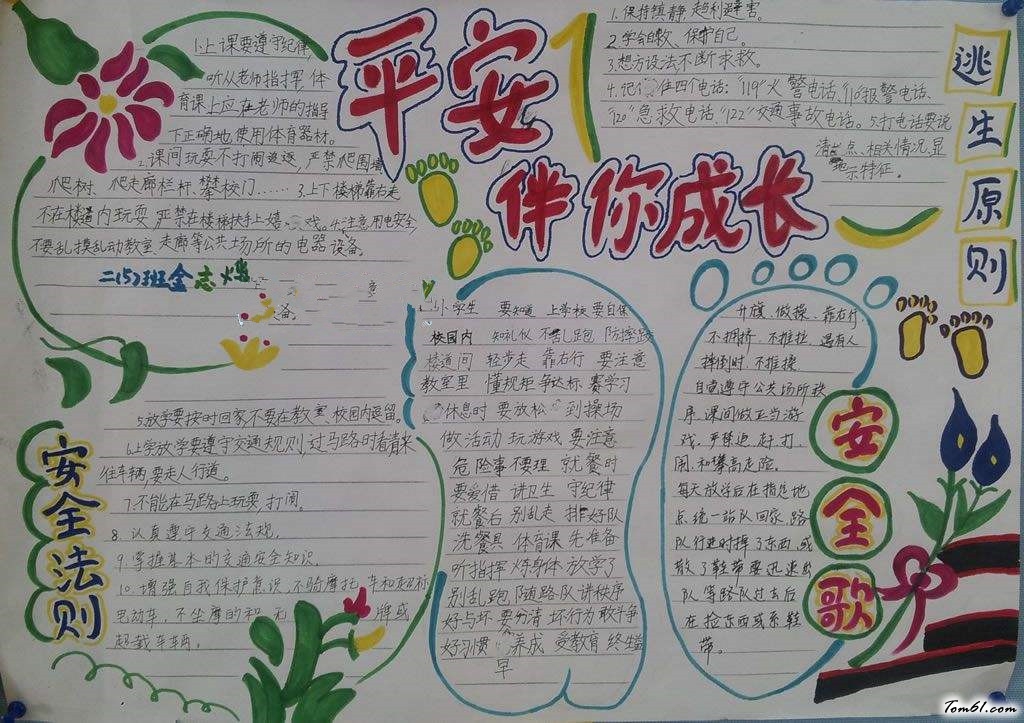 平安
伴你成长
1.上课要遵守纪律,
听从老师指挥,体
育课上应在老师的指导
下正确地使用体育器材。
2.课间玩耍不打闹追逐,严禁爬围墙
爬树、爬走廊栏杆、攀校门……3.上下楼梯靠右走
不在楼道内玩耍 严禁在楼梯扶手上嬉戏。4.注意用电安全,
不要乱摸乱动教室、走廊等公共场所的电器设备。
二(5)班金志
备。
1.保持镇静,趋利避害。
2.学会自救、保护自己。
3.想方设法不断求救。
4.记住四个电话:"119"火警电话、110报警电话、
"120"急救电话、"122"交通事故电话。5.打电话要说
清地点、相关情况,显
示特征。
逃生原则
5.放学要按时回家不要在教室、校园内逗留。
6.上学放学要遵守交通规则,过马路时看清来
往车辆,要走人行道。
7.不能在马路上玩耍,打闹。
8.认真遵守交通法规。
9.掌握基本的交通安全知识
10.增强自我保护意识,不骑摩托车和超标
电动车,不坐摩的和无牌或
超载车辆。
安全法则
小学生 要知道 上学校 要自保
校园内 知礼仪 不乱跑 防摔跤
楼道间 轻步走 靠右行 要注意
教室里 懂规矩 争达标 赛学习
休息时 要放松 到操场
做活动 玩游戏 要注意
危险事 不要理 就餐时
要爱惜 讲卫生 守纪律
就餐后 别乱走 排好队
洗餐具 体育课 先准备
听指挥 炼身体 放学了
别乱跑 随路队 讲秩序
好与坏 要分清 坏行为 敢斗争
好习惯 养成 受教育 终生益
早
升旗 做操、靠右行
不拥挤、不推拉、遇有人
摔倒时、不推挨、
自觉遵守公共场所秩
序、课间做正当游
戏、严禁追、赶、打、
闹、和攀高走险。
每天放学后在指定地
点统一站队回家、路
队行进时掉了东西、或
散了鞋带要迅速出
队等路队过去后
在捡东西或系鞋
带。
安全歌
Tom61.com